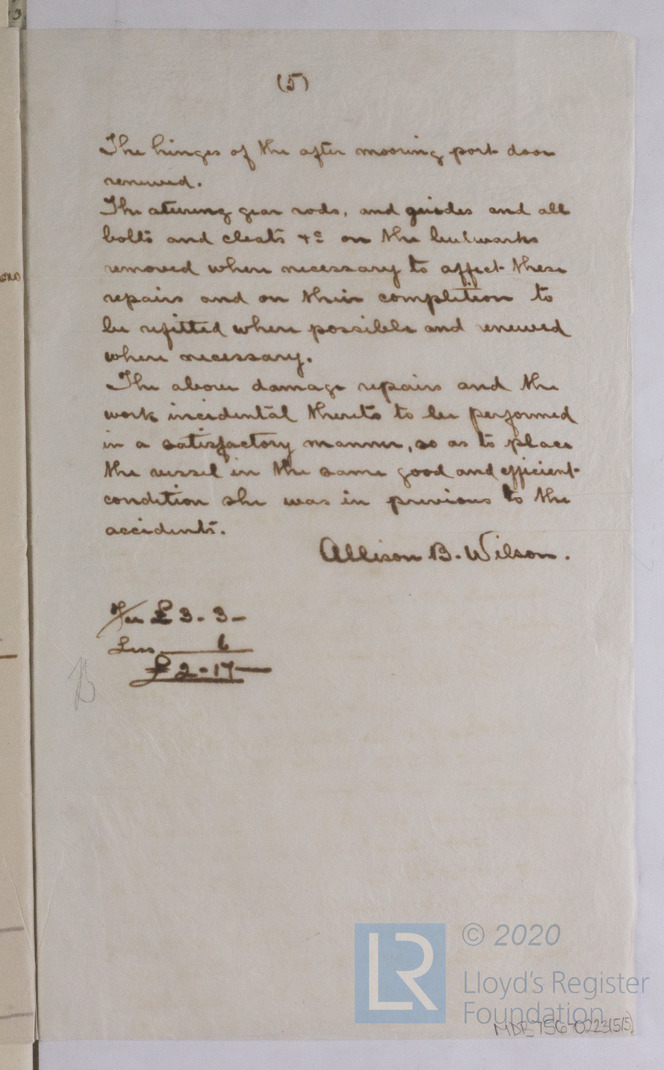 (5)
The hinges of the after mooring port door
renewed.
The steering gear rods, and guides and all
bolts and cleats &c on the bulwarks
removed where necessary to affect these
repairs and on their completion to
be refitted where possible and renewed
where necessary.
The above damage repairs and the
work incidental thereto to be performed
in a satisfactory manner, so as to place
the vessel in the same good and efficient
condition she was in previous to the
accidents.
Allison B. Wilson.
Fee £3-3-
Less 6
£2-17-
© 2020
LR
Lloyd's Register
Foundation